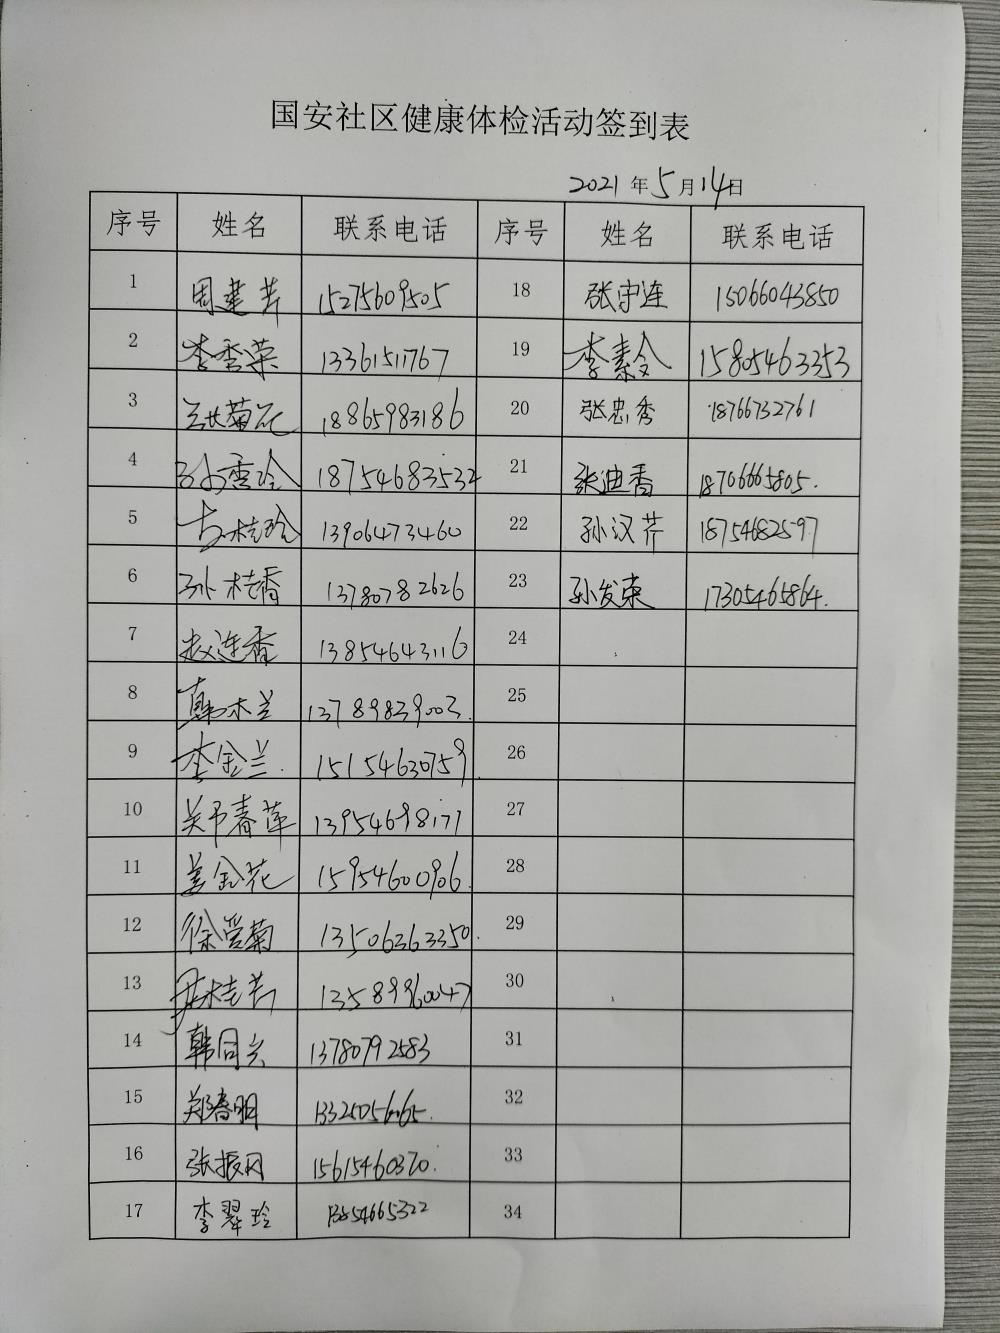 国安社区健康体检活动签到表
2021年5月14日
序号 姓名 联系电话 序号 姓名 联系电话
1 周建芳 15275609505 18 张守连 15066043850
2 李秀荣 13361511767 19 李素令 15805463353
3 张菊花 18865983186 20 张忠秀 18766732761
4 孙香玲 18754683532 21 张迪香 18706665805.
5 古桂玲 13906473460 22 孙汉芹 18754682597
6 孙桂香 13780782626 23 孙发荣 17305465864.
7 赵连香 13854643116 24
8 韩木兰 13789839003. 25
9 李金兰. 15154630759. 26
10 关乃春莲 13954698171 27
11 姜金花 15954600906. 28
12 徐爱菊 13506363350. 29
13 桂芳 13589960047 30
14 韩同兴 13780792583 31
15 郑春明 13325056065. 32
16 张振 15615460370. 33
17 李翠玲 13854665322 34